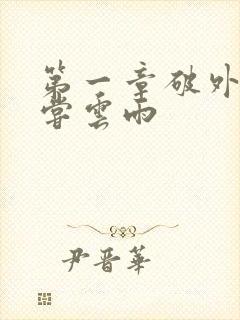 第一章破外
嘗雲雨
尹晋華